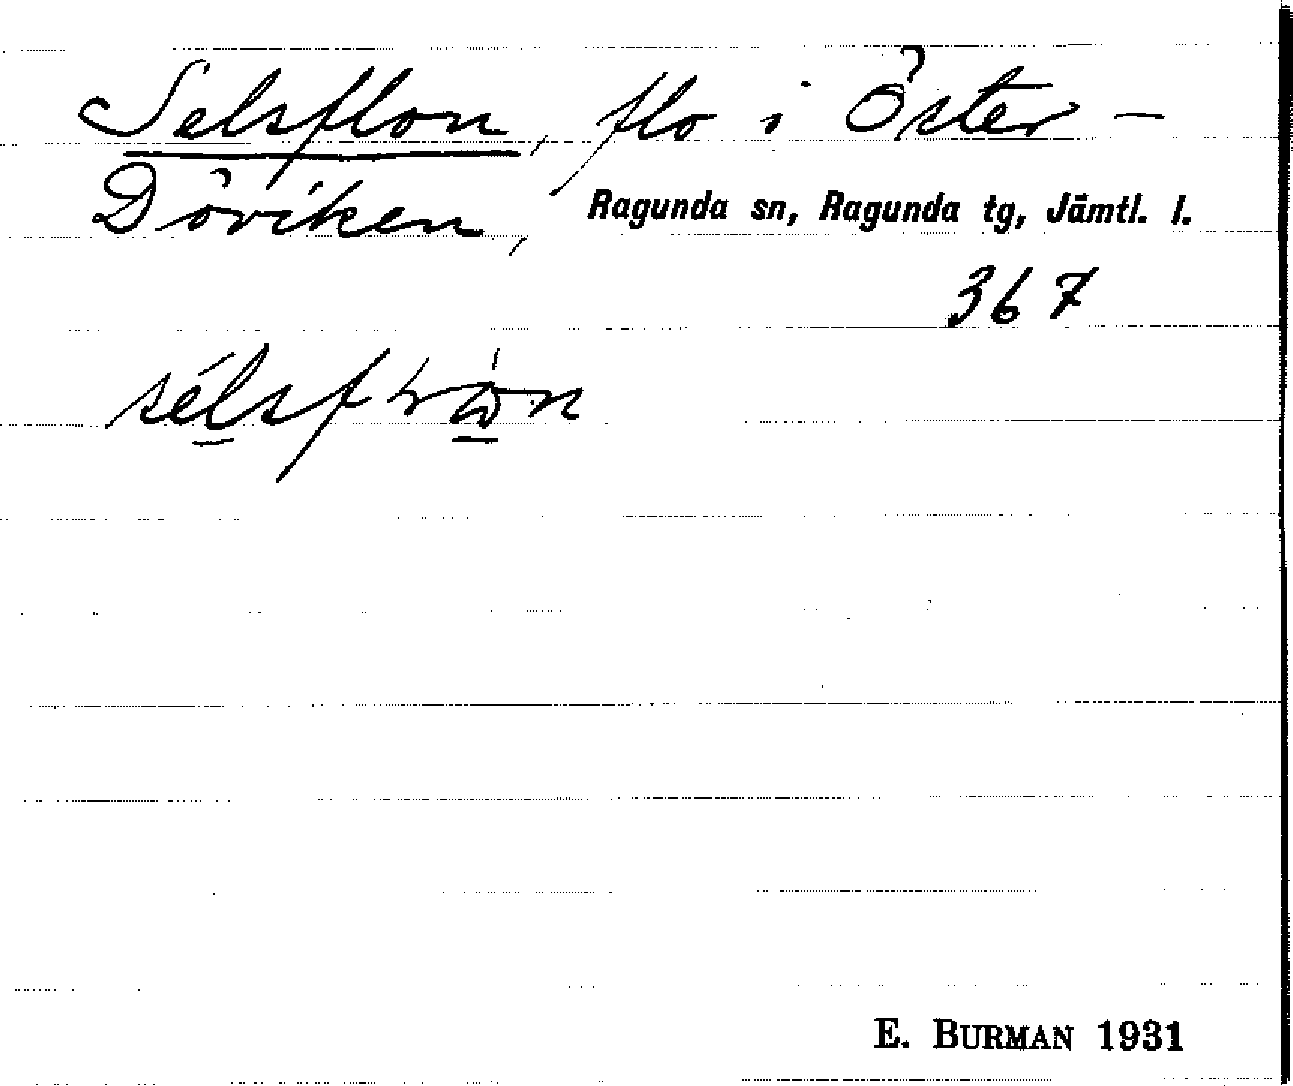 Selsflon, flo i Öster-
Döviken, Ragunda sn, Ragunda tg, Jämtl. l.
367
E. BURMAN 1931